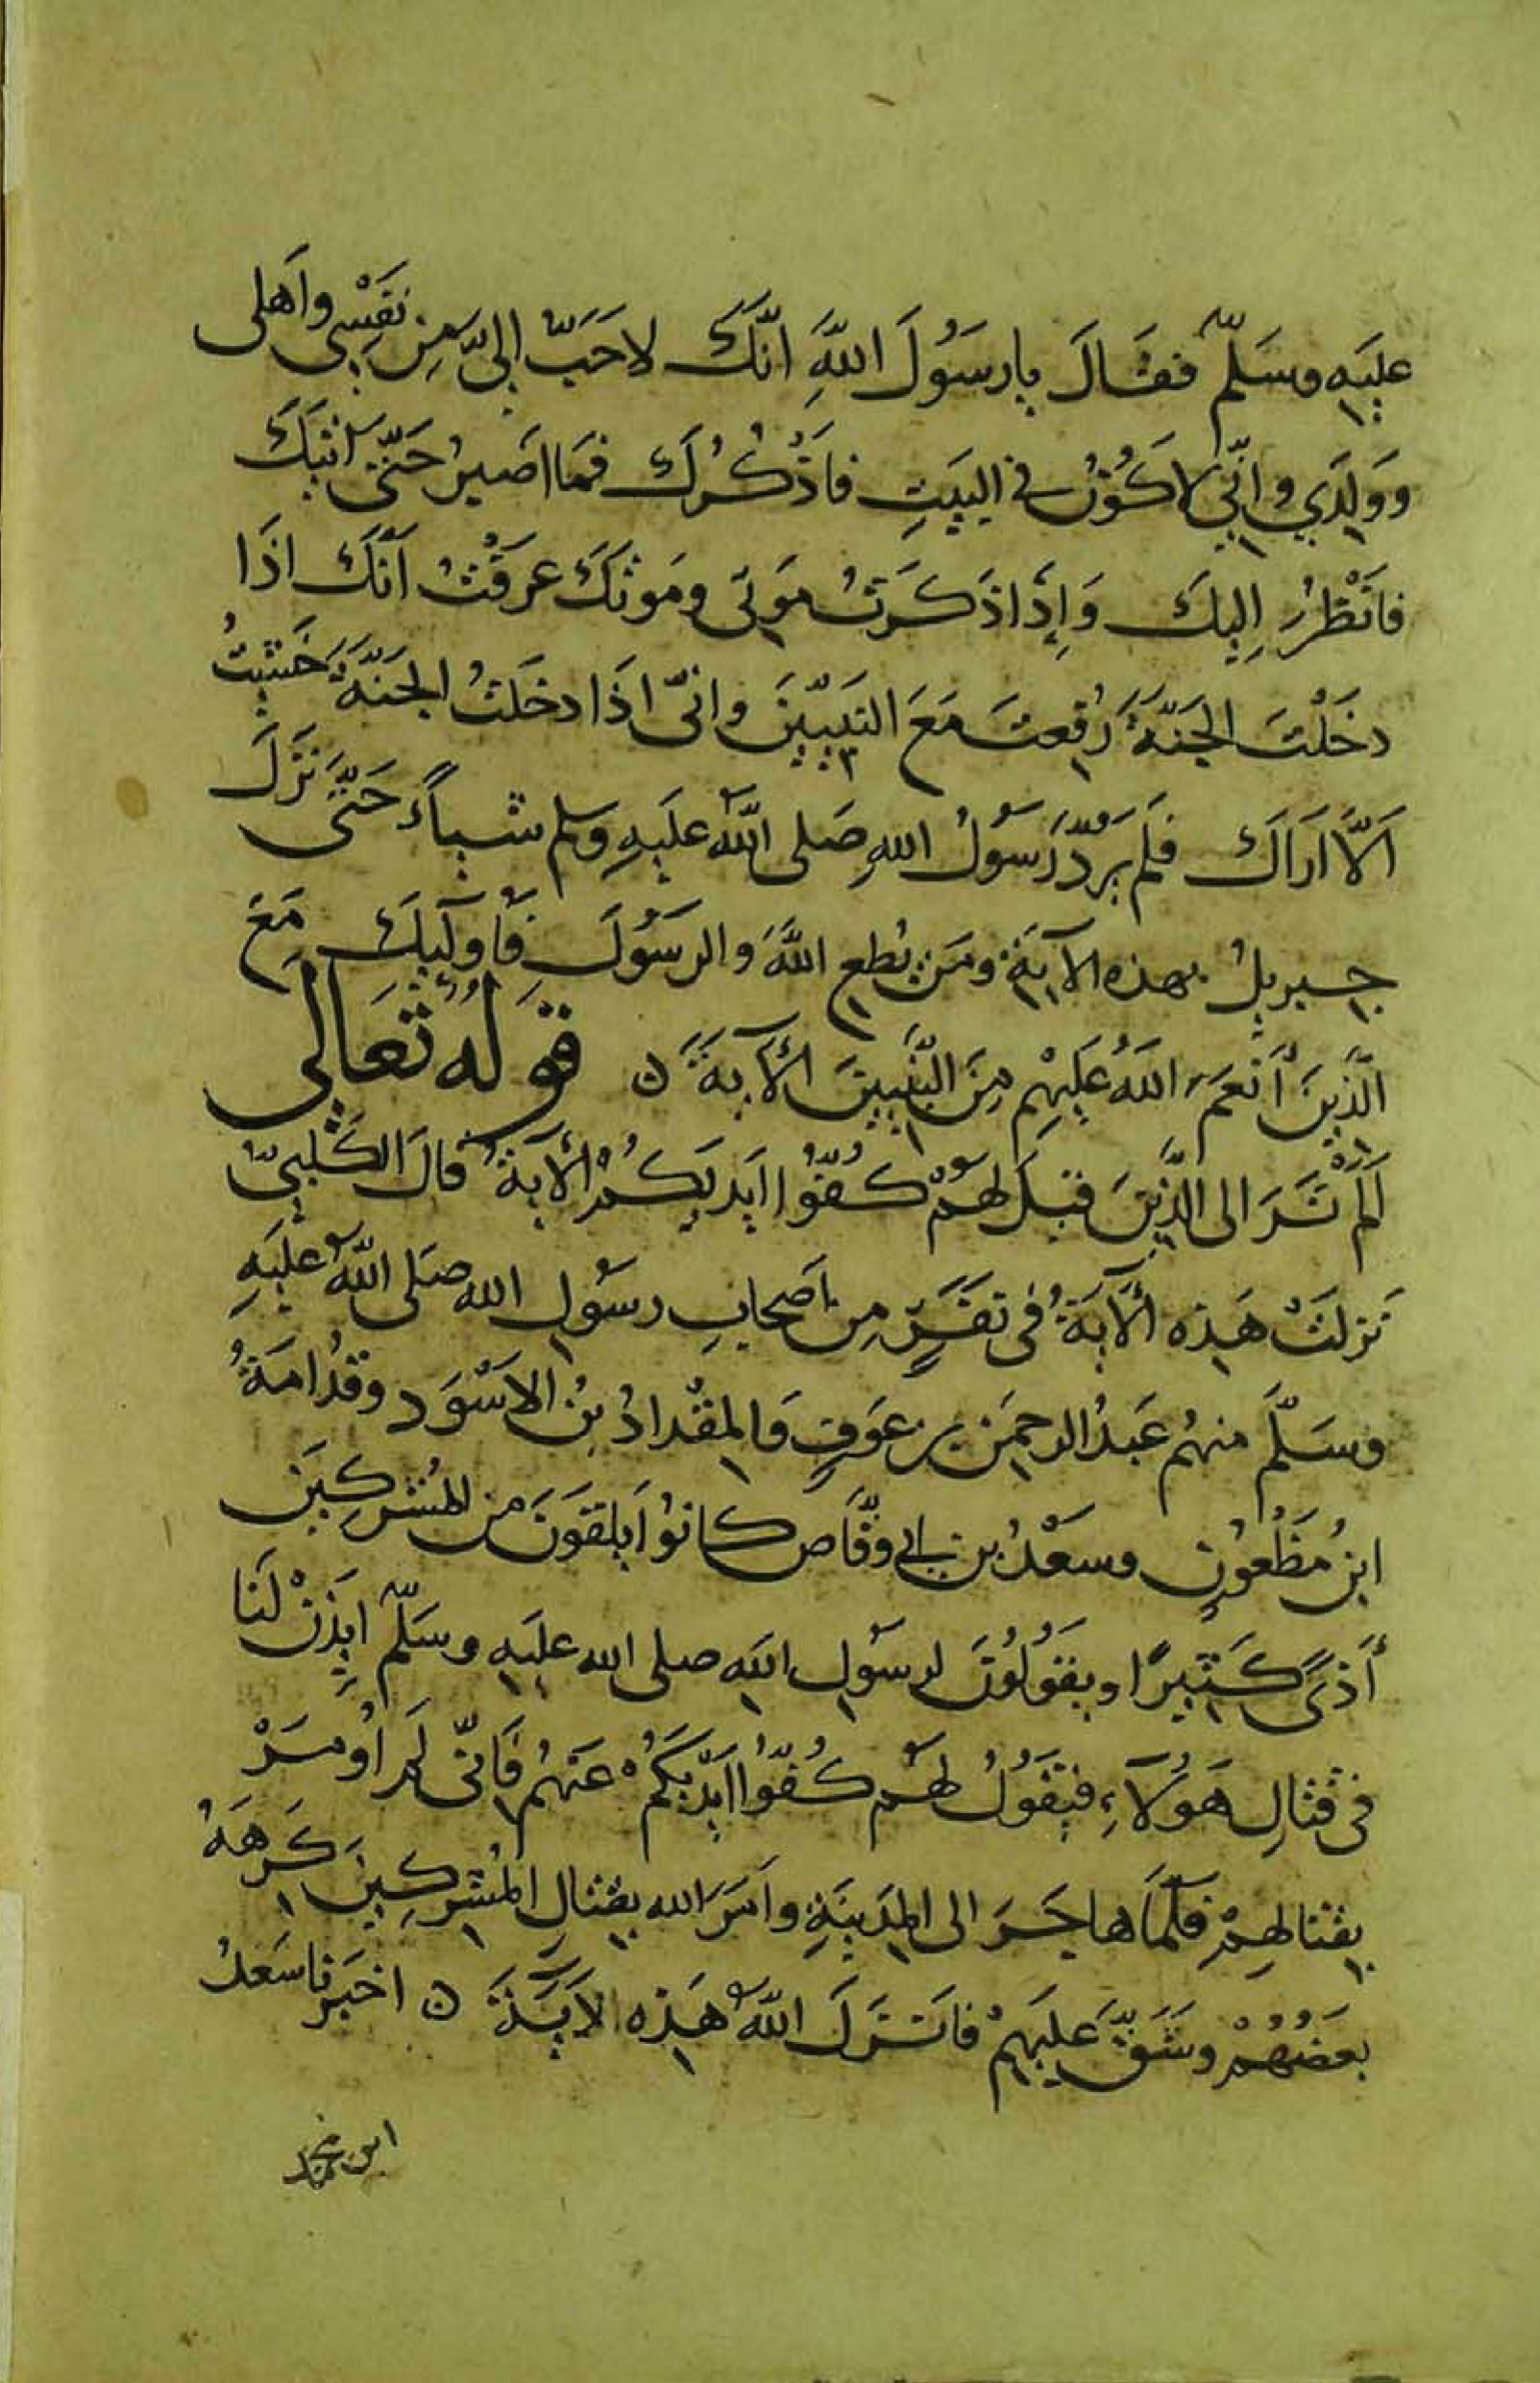 عليه وسلم فقال يا رسول الله انك لاحب الي من نفسي واهلى
وولدي واني لاكون في البيت فاذكرك فما اصبر حتى آتيك
فانظر اليك وإذا ذكرت موتى وموتك عرفت أنك اذا
دخلت الجنة رفعت مع النبيين وانى اذا دخلت الجنة خشيت
الا اراك فلم يرد رسول الله صلى الله عليه وسلم شيئا حتى نزل
جبريل بهذه الآية ومن يطع الله والرسول فأولئك مع
الذين أنعم الله عليهم من النبيين الآية ن قوله تعالى
الم تر الى الذين قيل لهم كفوا ايديكم الآية قال الكلبي
نزلت هذه الآية فى نفر من اصحاب رسول الله صلى الله عليه
وسلم منهم عبد الرحمن بن عوف والمقداد بن الاسود وقدامة
ابن مظعون وسعد بن ابي وقاص كانوا يلقون من المشركين
أذى كثيرا ويقولون لرسول الله صلى الله عليه وسلم ايذن لنا
فى قتال هولاء فيقول لهم كفوا ايديكم عنهم فانى لم اومر
بقتالهم فلما هاجر الى المدينة وامر الله بقتال المشركين كرهه
بعضهم وشق عليهم فانزل الله هذه الاية ن اخبرنا سعد
ابن محمد